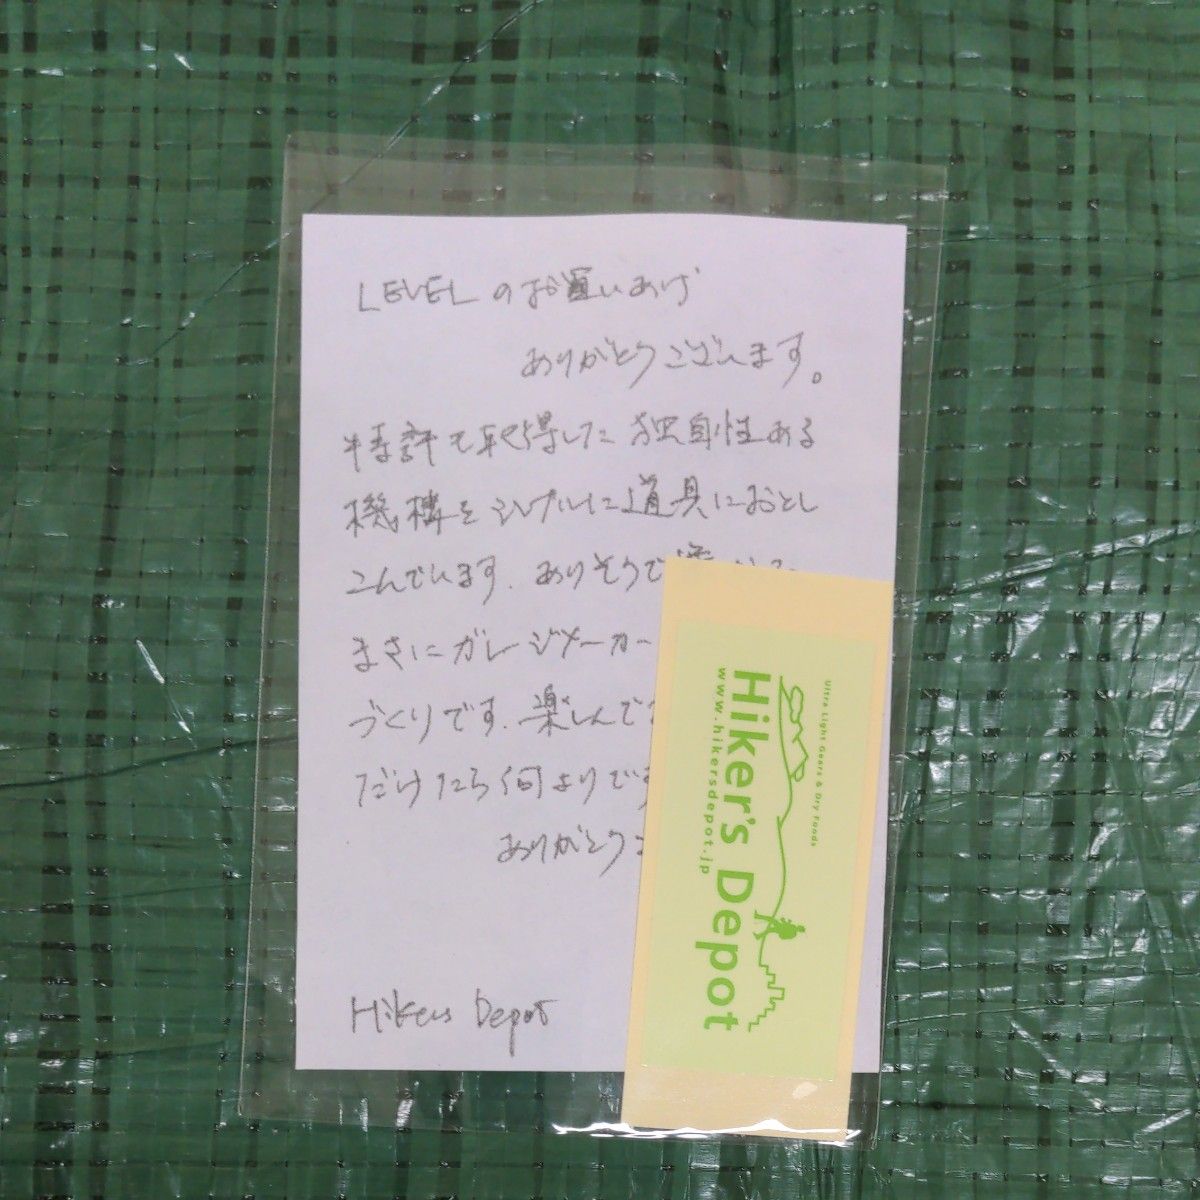 LEVELのお買いあげ
ありがとうございます。
特許も取得した独自性ある
機構をシンプルに道具におとし
こんでいます。ありそうで
まさにガレージメーカー
づくりです。楽しんで
だけたら何よりです
ありがとう
Hikers Depot
Ultra Light Gears & Dry Foods
Hiker's Depot
www.hikersdepot.jp